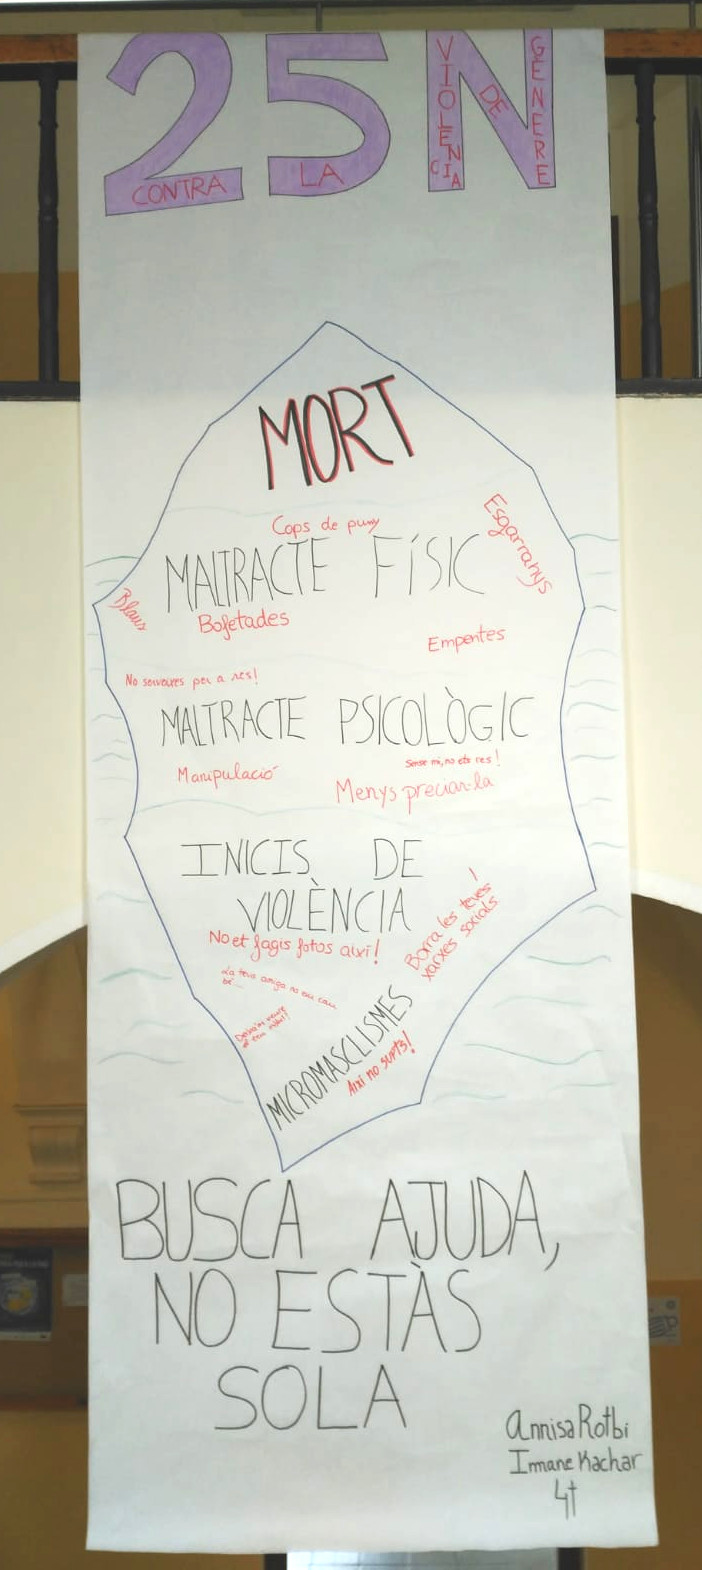 25N
CONTRA LA VIOLÈNCIA DE GÈNERE
MORT
Cops de puny
Esgarranys
MALTRACTE FÍSIC
Blaus
Bofetades
Empentes
No serveixes per a res!
MALTRACTE PSICOLÒGIC
Sense mi, no ets res!
Manipulació
Menys preciar-la
INICIS DE
VIOLÈNCIA
No et fagis fotos així!
Borra les teves
xarxes socials!
La teva amiga no em cau
bé...
Deixa'm veure
el teu mòbil!
MICROMASCLISMES
Així no surts!
BUSCA AJUDA,
NO ESTÀS
SOLA
Annisa Rotbi
Imane Kachar
4t